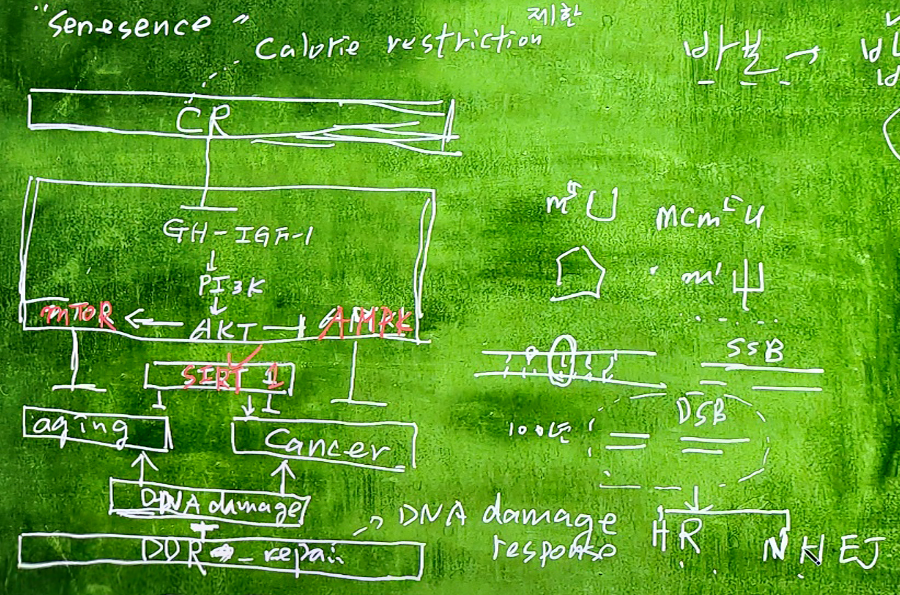 "Senesence"
Calorie restriction 제한
CR
GH-IGF-1
PI3K
mTOR
AKT
AMPK
SIRT 1
aging
Cancer
DNA damage
DDR
repair
DNA damage
response
반본
m⁵U
mcm⁵U
m¹ψ
SSB
DSB
HR
NHEJ